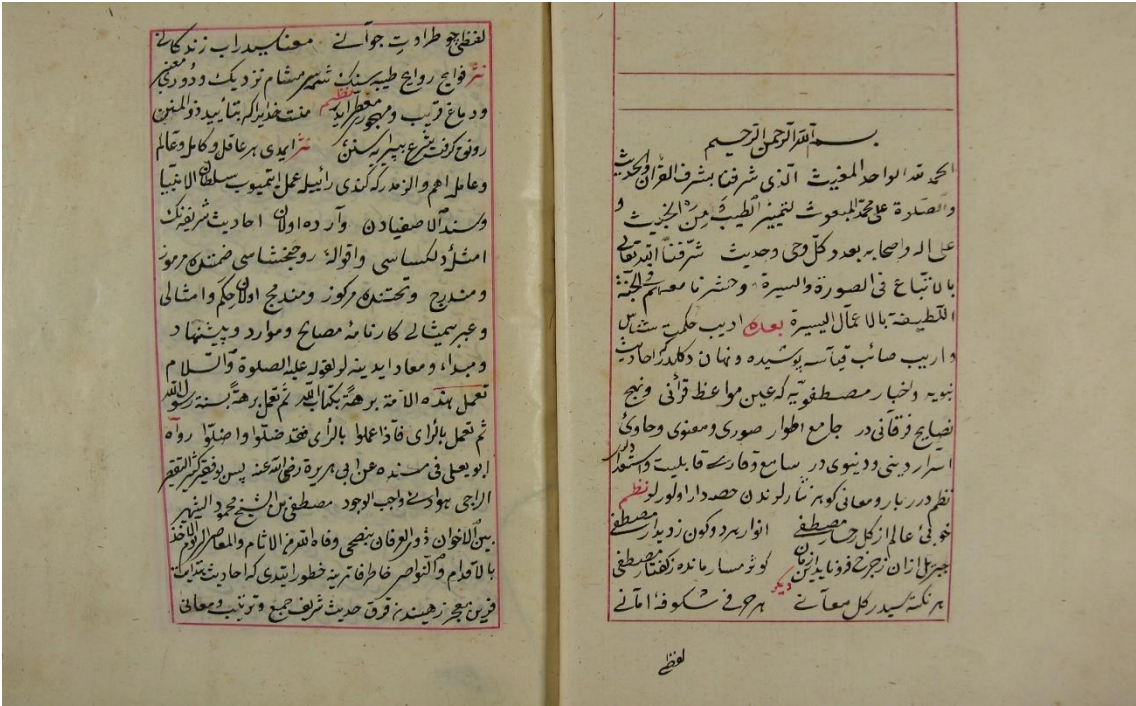 بسم الله الرحمن الرحيم
الحمد لله الواحد المغيث الذى شرفنا بشرف القرآن والحديث
والصلوة على محمد المبعوث لتمييز الطيب من الخبيث و
على اله واصحابه بعدد كل وحى وحديث شرفنا الله تعالى
بالاتباع فى الصورة والسيرة وحشرنا معهم فى الجنة
اللطيفة بالاعمال اليسيرة بعده اديب حكمت شناس
و اريب صائب قياسه پوشيده ونهان دكلدر كه احاديث
نبويه واخبار مصطفويه كه عين مواعظ قرآنى ونهج
نصايح فرقانى در جامع اطوار صورى ومعنوى وحاوئ
اسرار دينى ودنيوى در سامع وقارى قابليت واستعدادلرى
نظم درر بار ومعانى كوهر نثارلرندن حصه دار اولورلر نظم
خوبئ عالم از كل رخسار مصطفى انوار هر دو كون ز ديدار مصطفى
جبريل ازان ز چرخ فرو بايد اين زمان كوثر مسار مانده ز كفتار مصطفى
ديكر
هر نكته سيدر كل معانى هر حرفى شكوفهٔ امانى
لفظى
لفظى چو طراوت جوانى معناسيدر اب زندكانى
نثر فوايح روايح طيبه سنك شمسى مشام نزديك ودورى معنبر
ودماغ قريب ومهجورى معطر ايدر نظم منت خدايرا كه بتأييد ذو المنن
رونق كرفت شرع پيمبر به سنن نثر ايمدى هر عاقل وكامل وعالم
وعامله اهم والزمدر كه كندى رائيله عمل ايتميوب سلطان الانبيا
وسند الاصفيادن وارده اولان احاديث شريفه نك
امثلهٔ دلكساسى واقوالهٔ روحبخشاسى ضمنده مرموز
ومندرج وتحتنده مركوز ومندمج اولان حكم وامثالى
وعبر بيمثالى كارنامهٔ مصالح وموارد وپيشنهاد
ومبداء ومعاد ايدينه لر لقوله عليه الصلوة والسلام
تعمل هذه الامة برهة بكتاب الله ثم تعمل برهة بسنة رسول الله
ثم تعمل بالرأى فاذا عملوا بالرأى فقد ضلوا واضلوا رواه
ابو يعلى فى مسنده عن ابى هريرة رضى الله عنه پس بو فقير كثير التقصير
الراجى هوادئ واجب الوجود مصطفى بن الشيخ محمود الشهير
بين الاخوان ذوى العرفان بنصحى وقاه الله من الاثام والمعاصى الى يوم الاخذ
بالاقدام والنواصى خاطر فاترينه خطور ايتدى كه احاديث هدايت
قرين معجز رهيندن قرق حديث شريف جمع وترتيب ومعانى